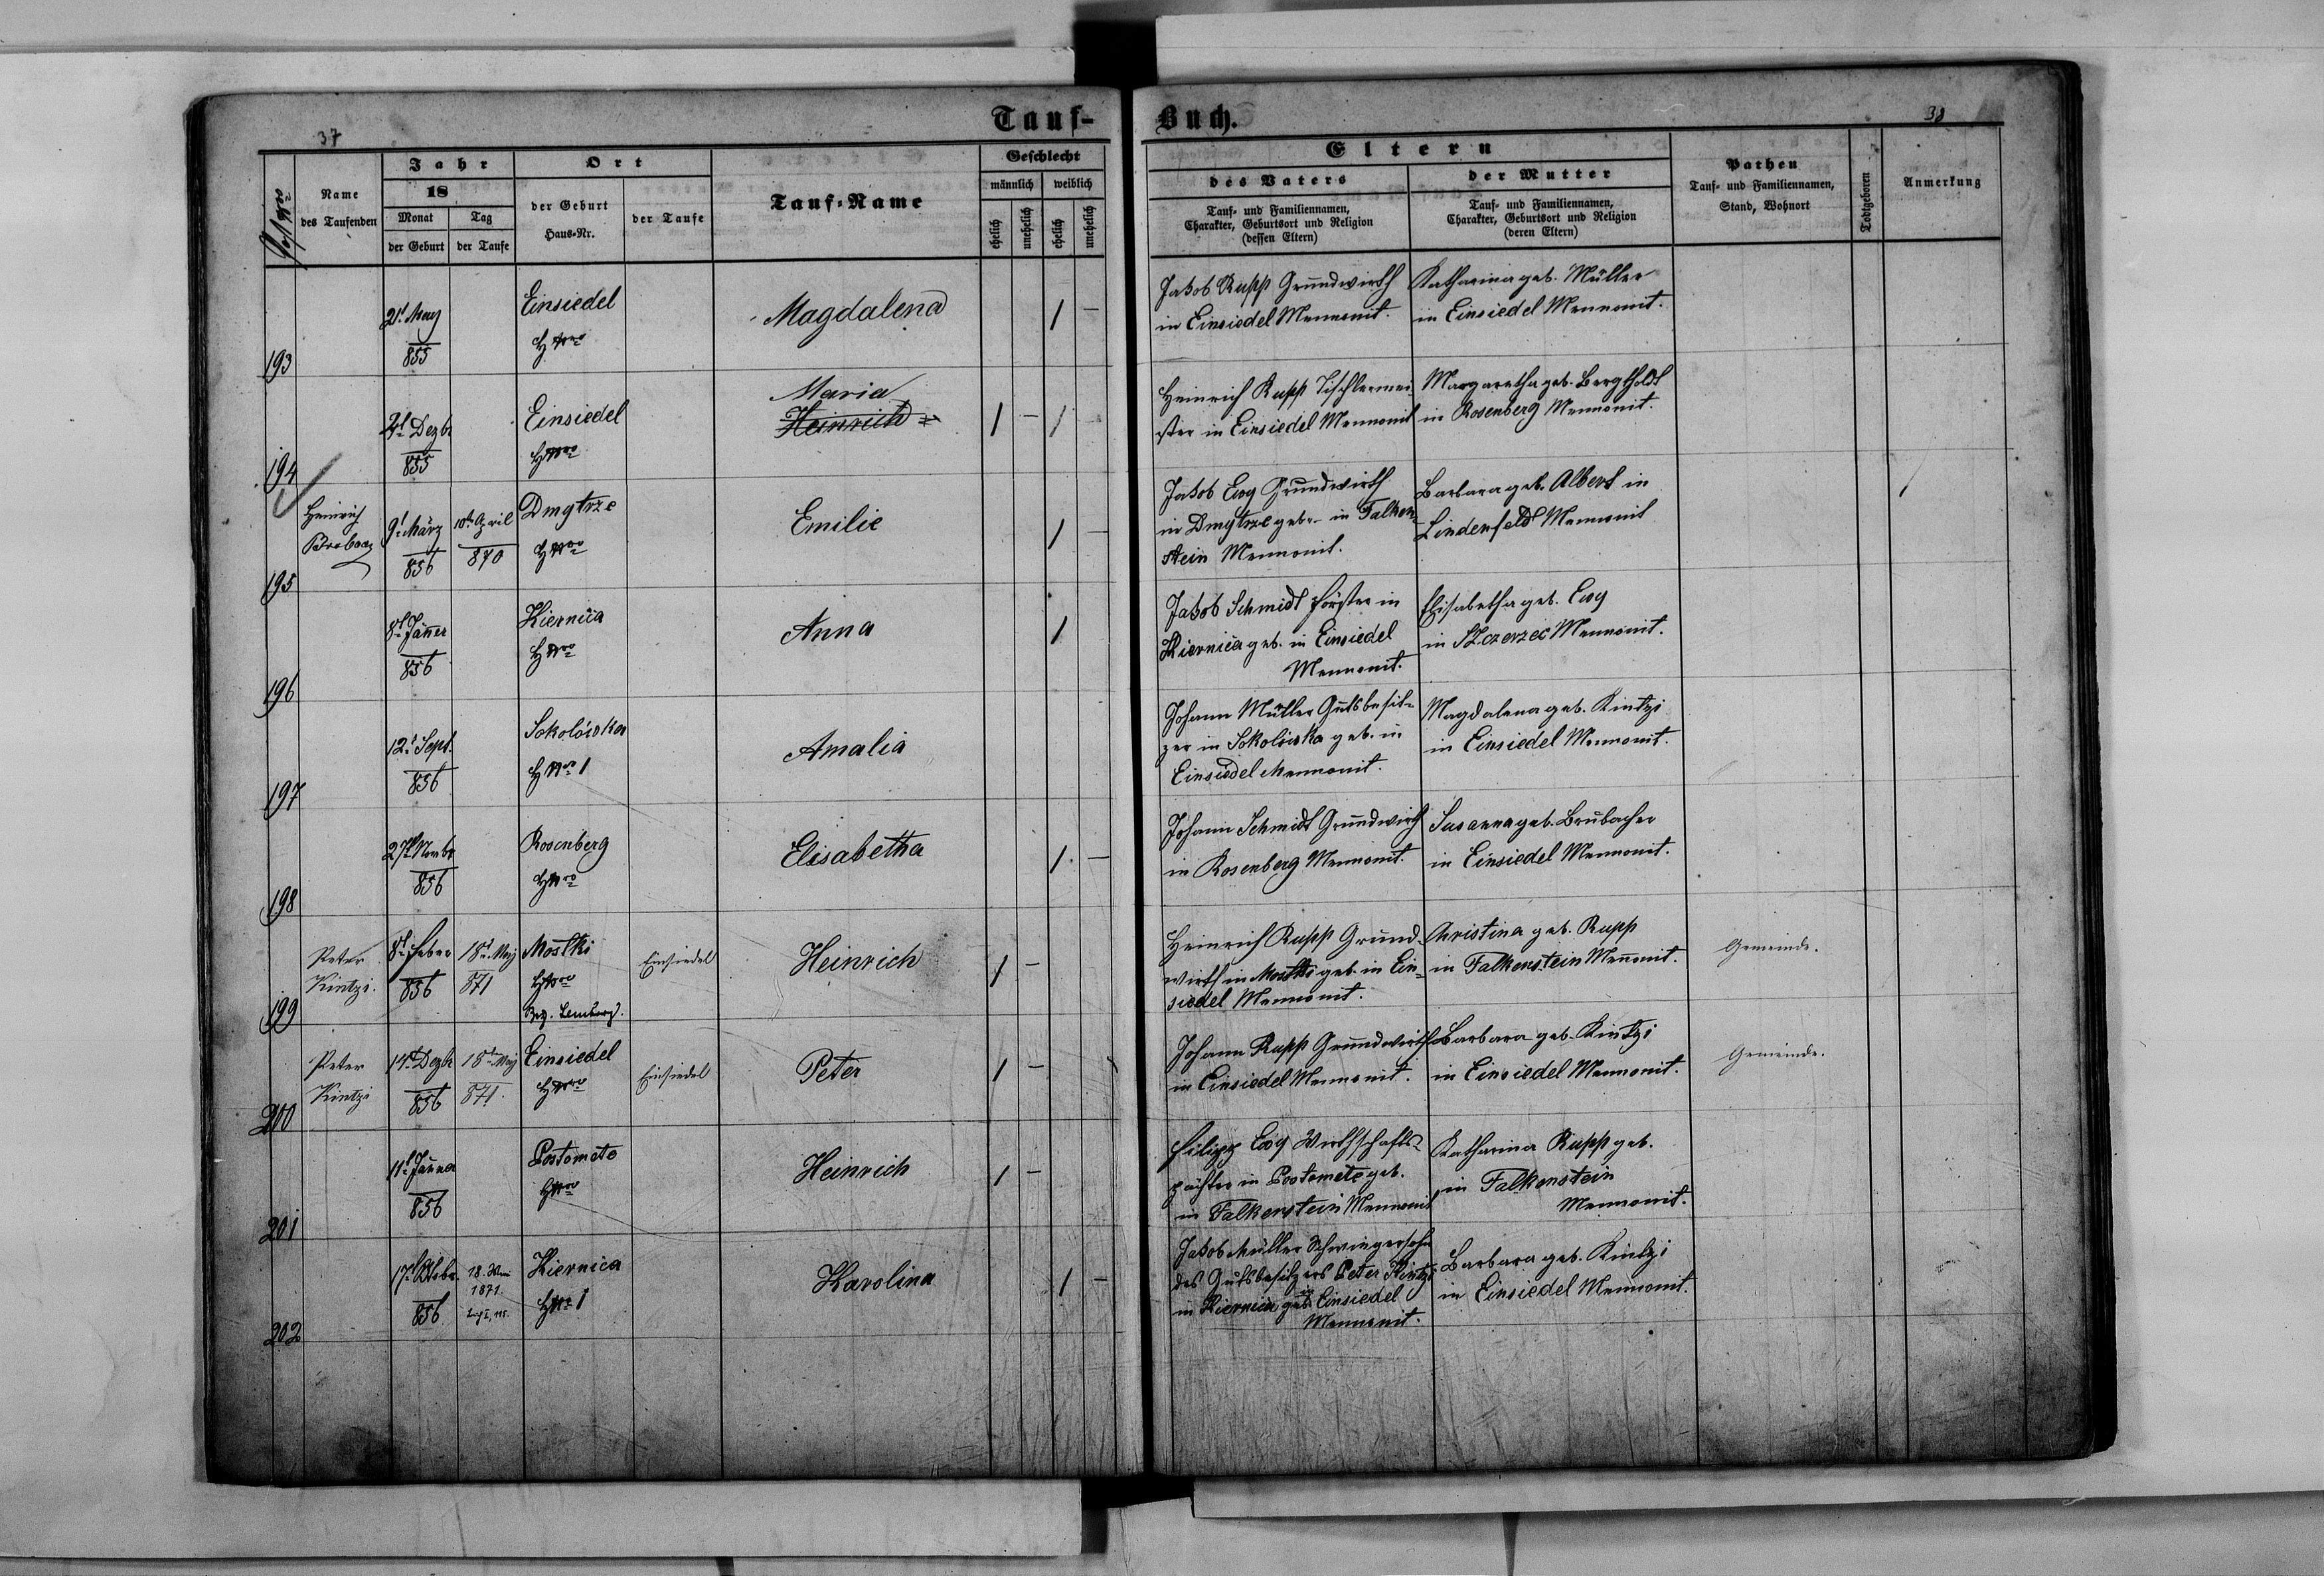 Tauf-
37
Post Nro
Name
des Taufenden
Jahr
18
Monat
Tag
der Geburt
der Taufe
Ort
der Geburt
Haus-Nr.
der Taufe
Tauf-Name
Geschlecht
männlich
weiblich
ehelich
unehelich
ehelich
unehelich
193
21t May
855
Einsiedel
HNro
Magdalena
/ –
194
Dezbr
855
Einsiedel
HNro
Maria
Heinrich
/ – /
195
Heinrich
9t März
856
10t April
870
Dmytrze
HNro
Emilie
/ –
196
8t Jänner
856
Kiernica
HNro
Anna
/
197
12t Sept.
856
Sokolówka
HNro 1
Amalia
198
27t Novbr
856
Rosenberg
HNro
Elisabetha
/ –
199
Peter
Kintzi.
8t Feber
856
18t May
871
Mostki
HNro
Bez. Lemberg.
Einsiedel
Heinrich
/ –
200
Peter
Kintzi
14t Dezbr
856
18t May
871.
Einsiedel
HNro
Einsiedel
Peter
/ –
201
11t Jänner
856
Postomete
HNro
Heinrich
/ –
202
17t Oktobr.
856
18. Mai
1871.
Kiernica
HNro 1
Karolina
/ –
Buch.
38
Eltern
des Vaters
Tauf- und Familiennamen,
Charakter, Geburtsort und Religion
(dessen Eltern)
der Mutter
Tauf- und Familiennamen,
Charakter, Geburtsort und Religion
(deren Eltern)
Pathen
Tauf- und Familiennamen,
Stand, Wohnort
Todtgeboren
Anmerkung
Jakob Rupp Grundwirth
in Einsiedel Mennonit.
Katharina geb. Müller
in Einsiedel Mennonit.
Heinrich Rupp Tischlermei-
ster in Einsiedel Mennonit
Margaretha geb. Bergtholdt
in Rosenberg Mennonit.
Jakob Ewy Grundwirth
in Dmytrze geb. in Falken-
stein Mennonit.
Barbara geb. Albert in
Lindenfeld Mennonit
Jakob Schmidt Förster in
Kiernica geb. in Einsiedel
Mennonit.
Elisabetha geb. Ewy
in Szczerzec Mennonit.
Johann Müller Gutsbesit-
zer in Sokolówka geb. in
Einsiedel Mennonit.
Magdalena geb. Kintzi
in Einsiedel Mennonit.
Johann Schmidt Grundwirth
in Rosenberg Mennonit.
Susanna geb. Brubacher
in Einsiedel Mennonit.
Heinrich Rupp Grund-
wirth in Mostki geb. in Ein-
siedel Mennonit.
Christina geb. Rupp
in Falkenstein Mennonit.
Gemeinde.
Johann Rupp Grundwirth
in Einsiedel Mennonit.
Barbara geb. Kintzi
in Einsiedel Mennonit.
Gemeinde.
Filipp Ewy Wirthschafts-
pächter in Postomete geb.
in Falkenstein Mennonit
Katharina Rupp geb.
in Falkenstein
Mennonit.
Jakob Müller Schwiegersohn
des Gutsbesitzers Peter Kintzi
in Kiernica geb. Einsiedel
Mennonit.
Barbara geb. Kintzi
in Einsiedel Mennonit.